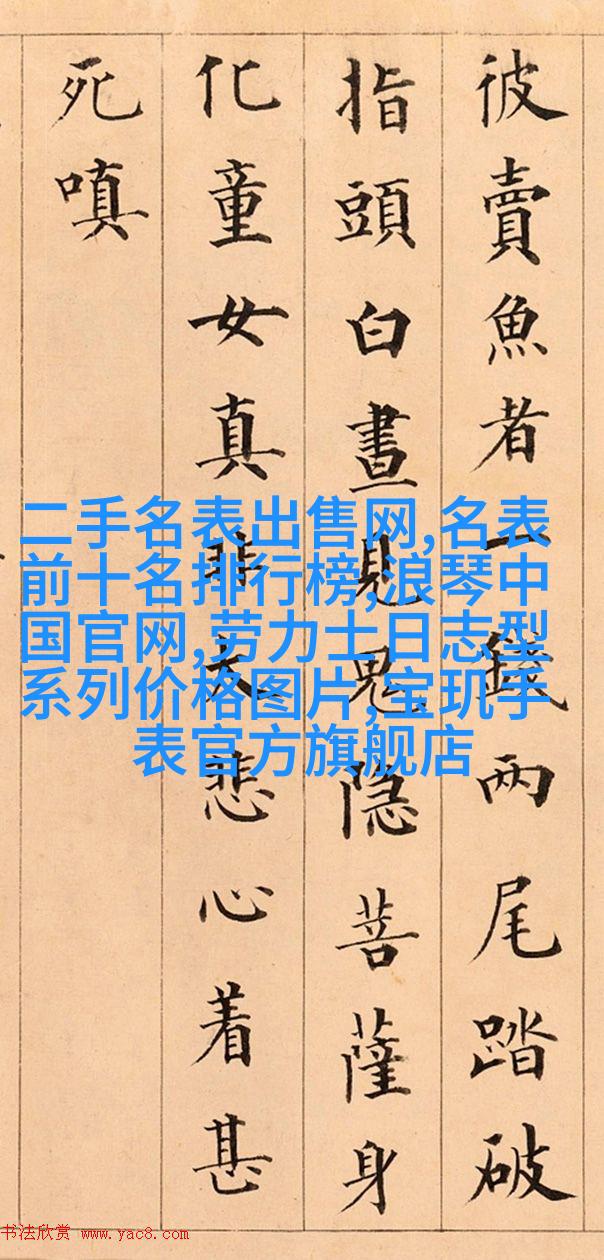 彼賣魚者一錢兩尾踏破
指頭白晝見鬼隐菩薩身
化童女真非大悲心着甚
死嗔
二手名表出售网,名表
前十名排行榜,浪琴中
国官网,劳力士日志型
系列价格图片,宝玑手
表官方旗舰店
书法欣赏 www.yac8.com